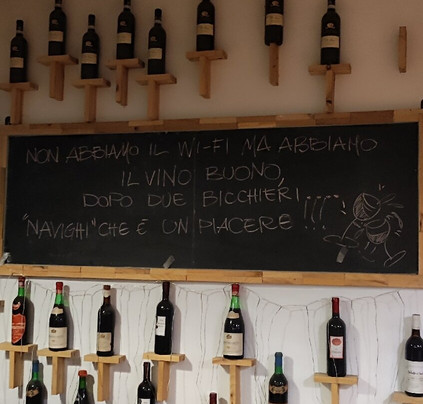 NON ABBIAMO IL WI-FI MA ABBIAMO
IL VINO BUONO,
DOPO DUE BICCHIERI
"NAVIGHI" CHE È UN PIACERE !!!